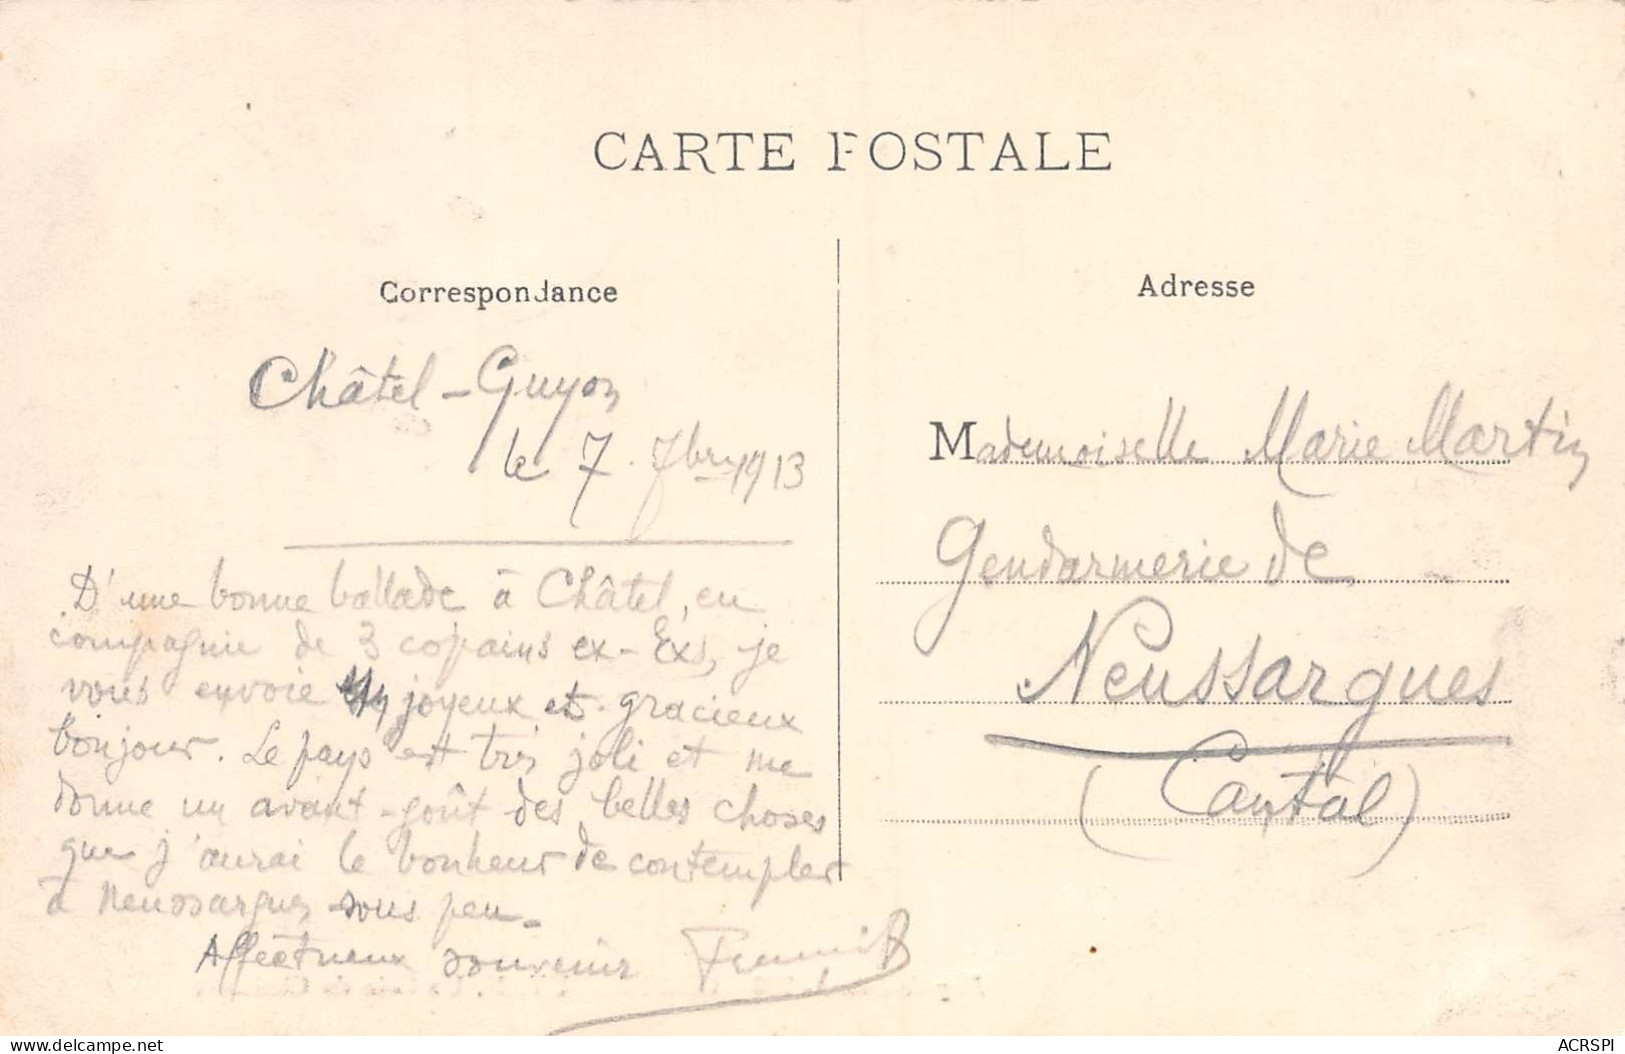 CARTE POSTALE
Correspondance
Châtel-Guyon
le 7. 7bre 1913
D'une bonne ballade à Châtel, en
compagnie de 3 copains ex-Exs, je
vous envoie joyeux et gracieux
bonjour. Le pays est très joli et me
donne un avant-goût des belles choses
que j'aurai le bonheur de contempler
à Neussargues sous peu.
Affectueux souvenir
Adresse
Mademoiselle Marie Martin
Gendarmerie de
Neussargues
(Cantal)
ACRSPI